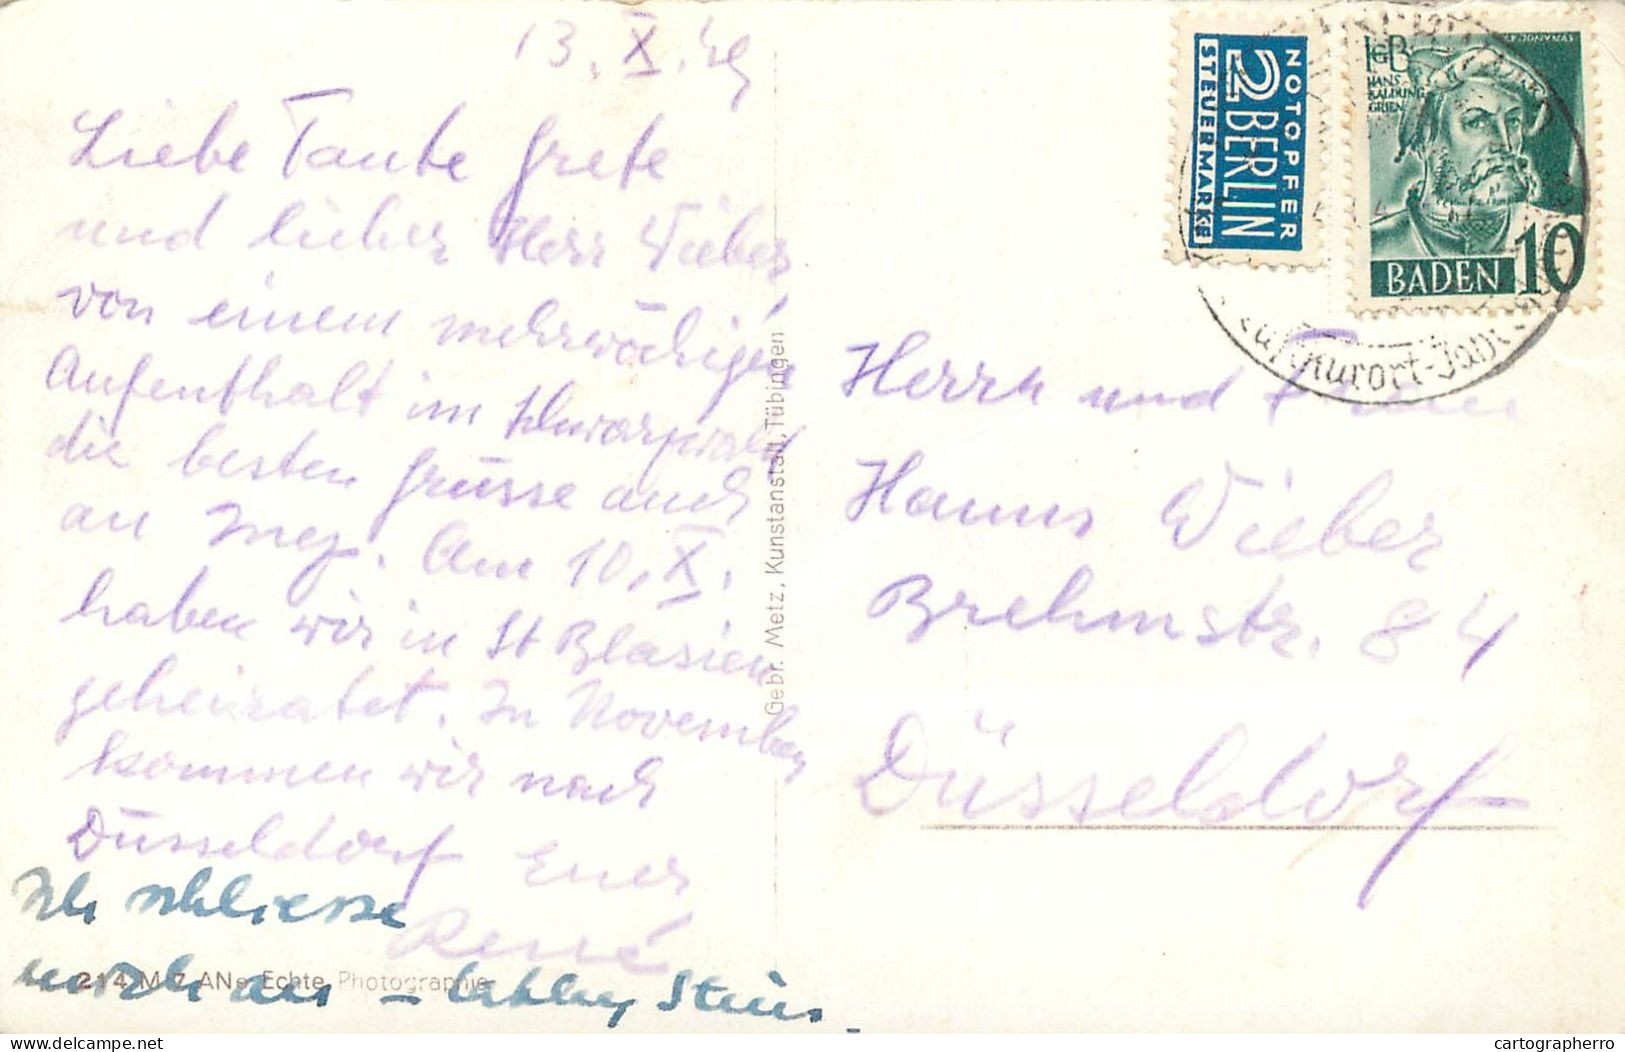 13. X. 49
Liebe Tante Grete
und lieber Herr Wieber
von einem mehrwöchigen
Aufenthalt im Schwarzwald
die besten Grüsse auch
an Inez. Am 10. X.
haben wir in St Blasien
geheiratet. In November
kommen wir nach
Düsseldorf Euer
René
Ich schliesse
mich an –
214 Metz ANe Echte Photographie
Gebr. Metz, Kunstanstalt, Tübingen
NOTOPFER
2 BERLIN
STEUERMARKE
HGB
V. JONYNAS
HANS
BALDUNG
GRIEN
BADEN 10
Luftkurort
Herrn und Frau
Hanns Wieber
Brehmstr. 84
Düsseldorf
delcampe.net
cartographerro